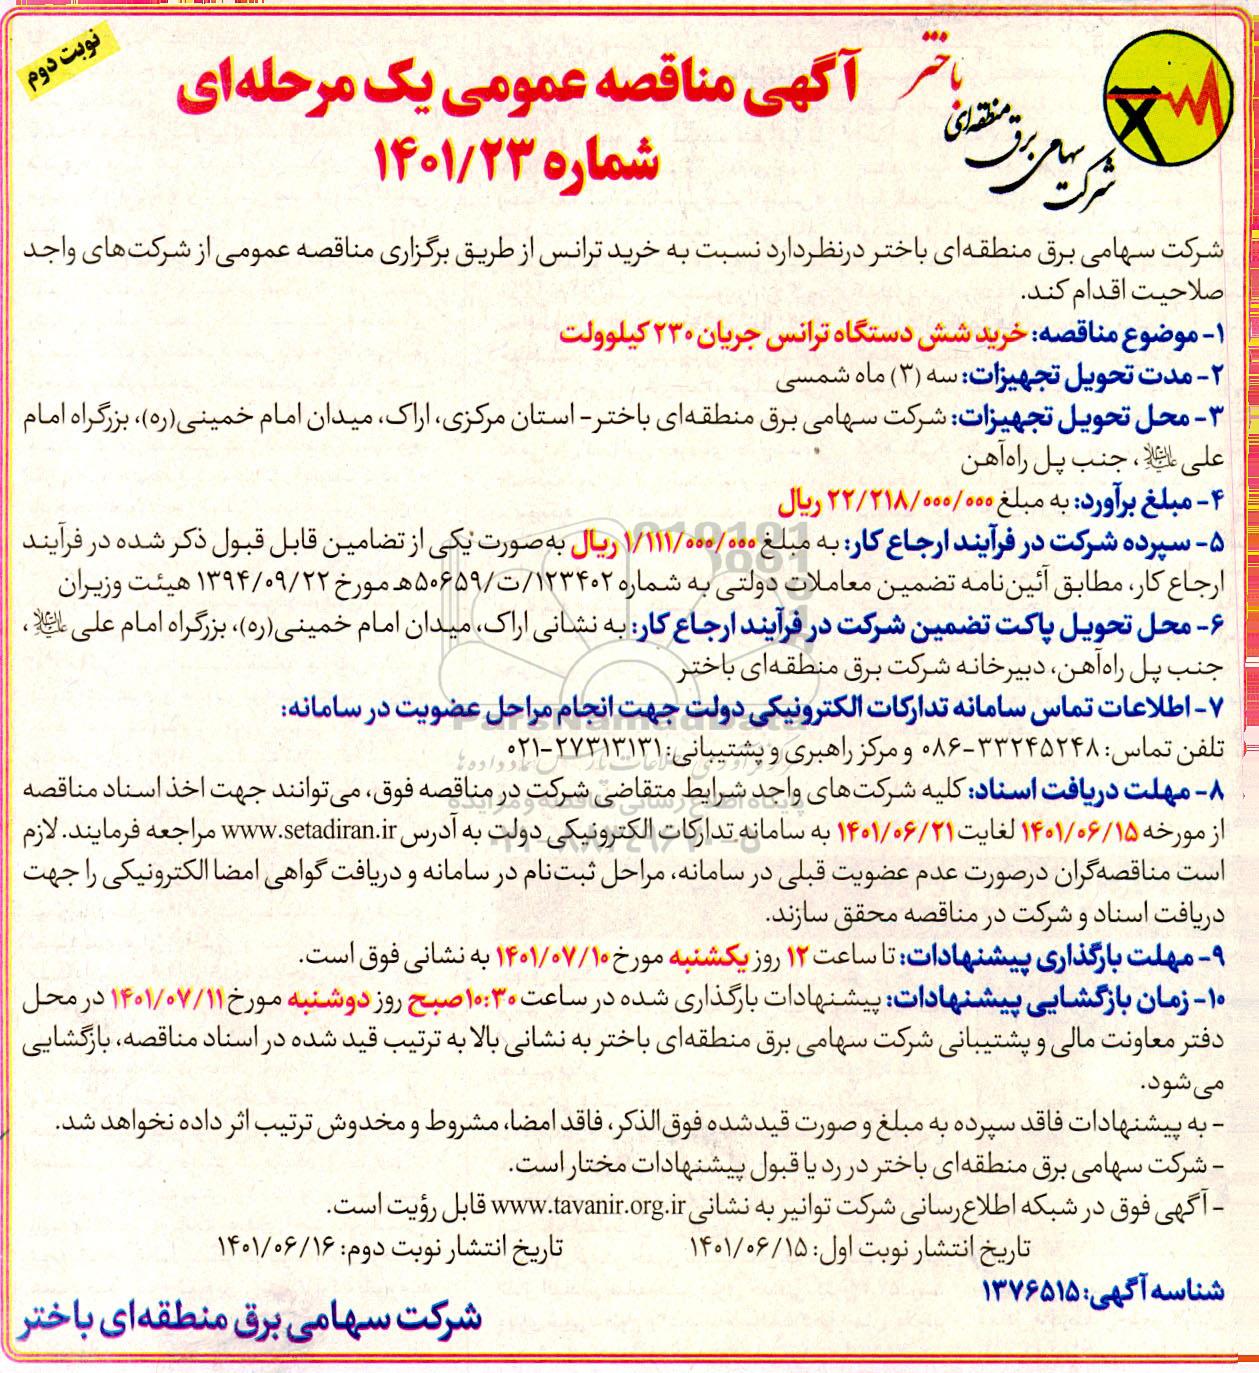 نوبت دوم
شرکت سهامی برق منطقه‌ای باختر
آگهی مناقصه عمومی یک مرحله‌ای
شماره ۱۴۰۱/۲۳
شرکت سهامی برق منطقه‌ای باختر درنظردارد نسبت به خرید ترانس از طریق برگزاری مناقصه عمومی از شرکت‌های واجد
صلاحیت اقدام کند.
۱- موضوع مناقصه: خرید شش دستگاه ترانس جریان ۲۳۰ کیلوولت
۲- مدت تحویل تجهیزات: سه (۳) ماه شمسی
۳- محل تحویل تجهیزات: شرکت سهامی برق منطقه‌ای باختر- استان مرکزی، اراک، میدان امام خمینی(ره)، بزرگراه امام
علی علیه‌السلام، جنب پل راه‌آهن
۴- مبلغ برآورد: به مبلغ ۲۲/۲۱۸/۰۰۰/۰۰۰ ریال
۵- سپرده شرکت در فرآیند ارجاع کار: به مبلغ ۱/۱۱۱/۰۰۰/۰۰۰ ریال به‌صورت یکی از تضامین قابل قبول ذکر شده در فرآیند
ارجاع کار، مطابق آئین‌نامه تضمین معاملات دولتی به شماره ۱۲۳۴۰۲/ت/۵۰۶۵۹هـ مورخ ۱۳۹۴/۰۹/۲۲ هیئت وزیران
۶- محل تحویل پاکت تضمین شرکت در فرآیند ارجاع کار: به نشانی اراک، میدان امام خمینی(ره)، بزرگراه امام علی علیه‌السلام،
جنب پل راه‌آهن، دبیرخانه شرکت برق منطقه‌ای باختر
۷- اطلاعات تماس سامانه تدارکات الکترونیکی دولت جهت انجام مراحل عضویت در سامانه:
تلفن تماس: ۳۳۲۴۵۲۴۸-۰۸۶ و مرکز راهبری و پشتیبانی: ۲۷۳۱۳۱۳۱-۰۲۱
۸- مهلت دریافت اسناد: کلیه شرکت‌های واجد شرایط متقاضی شرکت در مناقصه فوق، می‌توانند جهت اخذ اسناد مناقصه
از مورخه ۱۴۰۱/۰۶/۱۵ لغایت ۱۴۰۱/۰۶/۲۱ به سامانه تدارکات الکترونیکی دولت به آدرس www.setadiran.ir مراجعه فرمایند. لازم
است مناقصه‌گران درصورت عدم عضویت قبلی در سامانه، مراحل ثبت‌نام در سامانه و دریافت گواهی امضا الکترونیکی را جهت
دریافت اسناد و شرکت در مناقصه محقق سازند.
۹- مهلت بارگذاری پیشنهادات: تا ساعت ۱۲ روز یکشنبه مورخ ۱۴۰۱/۰۷/۱۰ به نشانی فوق است.
۱۰- زمان بازگشایی پیشنهادات: پیشنهادات بارگذاری شده در ساعت ۱۰:۳۰صبح روز دوشنبه مورخ ۱۴۰۱/۰۷/۱۱ در محل
دفتر معاونت مالی و پشتیبانی شرکت سهامی برق منطقه‌ای باختر به نشانی بالا به ترتیب قید شده در اسناد مناقصه، بازگشایی
می‌شود.
- به پیشنهادات فاقد سپرده به مبلغ و صورت قیدشده فوق‌الذکر، فاقد امضا، مشروط و مخدوش ترتیب اثر داده نخواهد شد.
- شرکت سهامی برق منطقه‌ای باختر در رد یا قبول پیشنهادات مختار است.
- آگهی فوق در شبکه اطلاع‌رسانی شرکت توانیر به نشانی www.tavanir.org.ir قابل رؤیت است.
تاریخ انتشار نوبت اول: ۱۴۰۱/۰۶/۱۵ تاریخ انتشار نوبت دوم: ۱۴۰۱/۰۶/۱۶
شناسه آگهی: ۱۳۷۶۵۱۵
شرکت سهامی برق منطقه‌ای باختر
ParsNamadData
پایگاه اطلاع رسانی مناقصه و مزایده